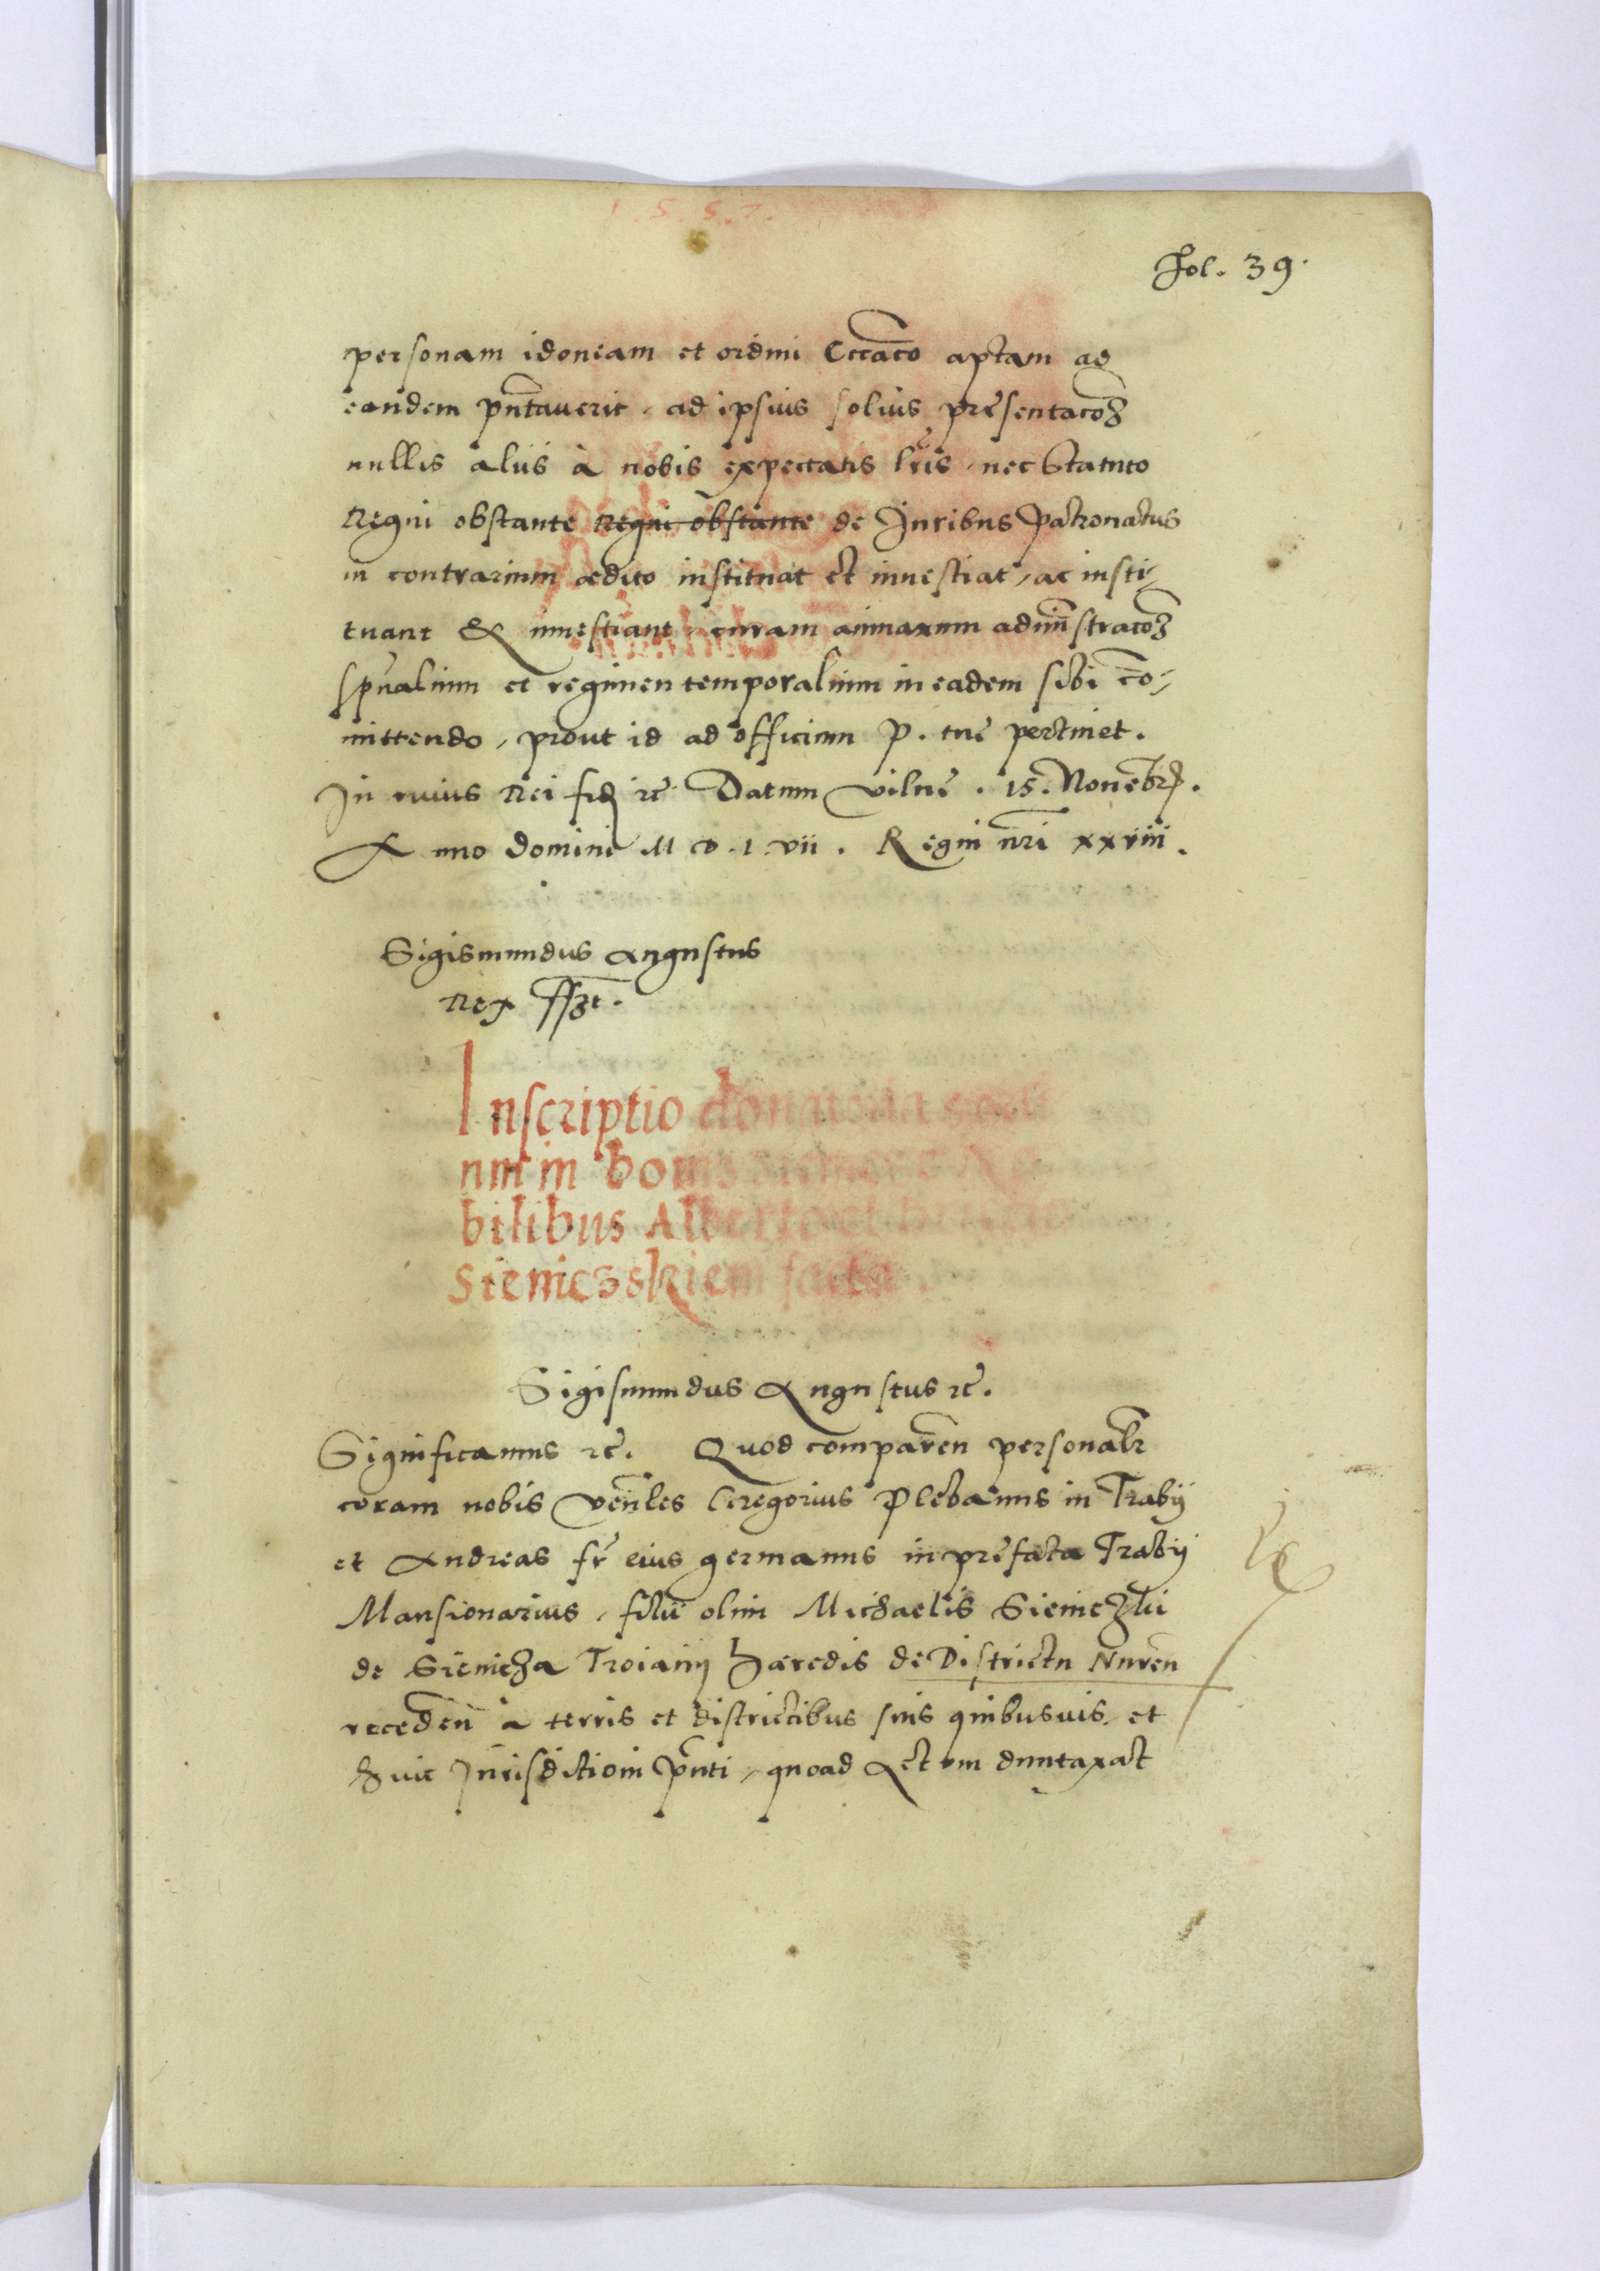 1.5.5.7.
Fol. 39.
personam idoneam et ordini Eccãco aptam ad
eandem pñtaverit, ad ipsius solius præsentacoȝ
nullis alijs à nobis expectatis lris, nec Statuto
Regni obstante Regni obstante de Juribus Patronatus
in contrarium ædito instituat et investiat, ac insti,
tuant & investiant, curam animarum administracoȝ
spũalium et regimen temporalium in eadem sibi cõ,
mittendo, prout id ad officium P. tuæ pertinet.
In cuius Rei fid ꝛc Datum Vilnæ. 15. Novembr.
Anno domini M D L VII. Regni nri XXVIII.
Sigismundus Augustus
Rex sszt.
Inscriptio donatoria
num in bonis No
bilibus Alberto et
Sieniczskiem facta.
Sigismundus Augustus ꝛc.
Significamus ꝛc. Quod comparen personalr
coram nobis Venles Gregorius Plebanus in Trabij
et Andreas fr eius germanus in præfata Trabij
Mansionarius, filii olim Michaelis Sieniczki
de Sienicza Troianij hæredis de Districtu Nuren
receden à terris et districtibus suis quibusvis, et
huic Jurisdictioni pñti, quoad Actum duntaxat